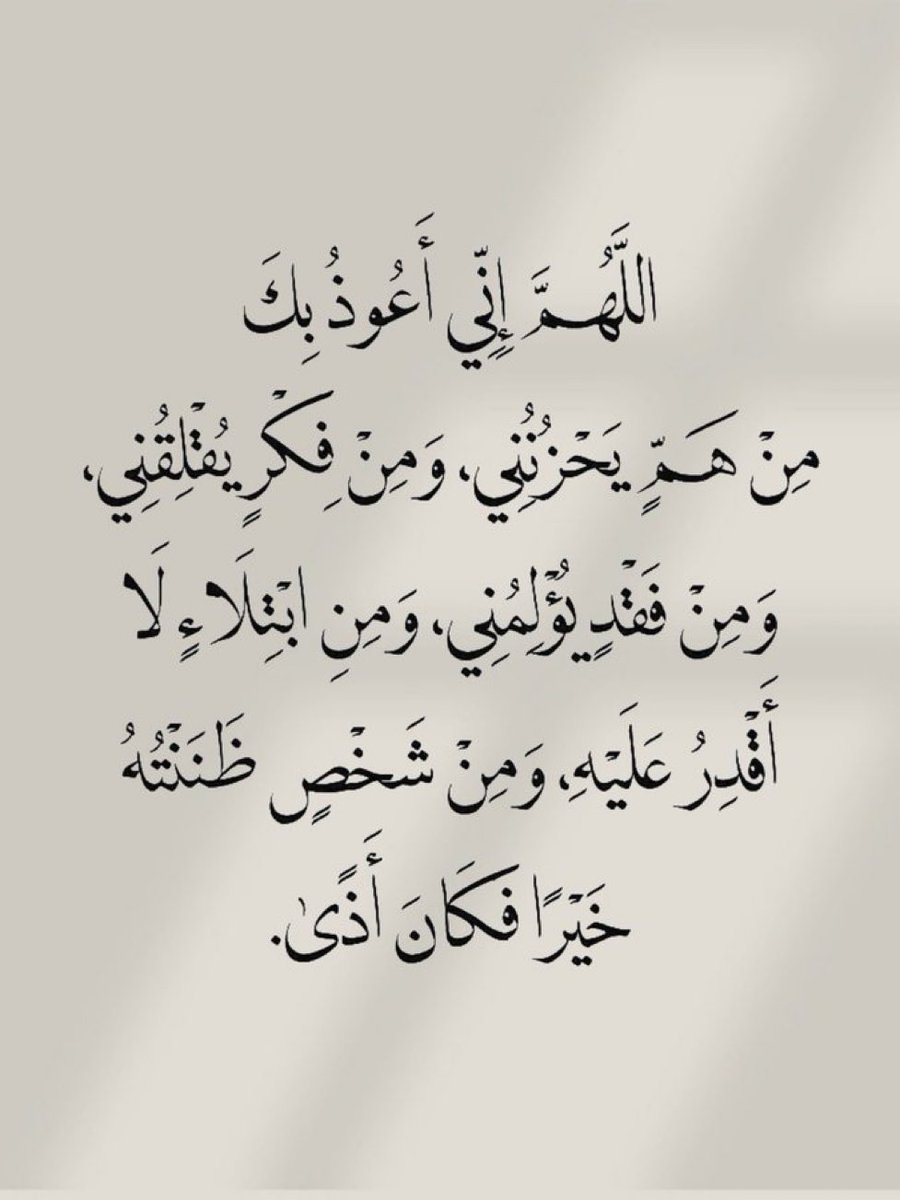 اللَّهُمَّ إِنِّي أَعُوذُ بِكَ
مِنْ هَمٍّ يَحْزُنُنِي، وَمِنْ فِكْرٍ يُقْلِقُنِي،
وَمِنْ فَقْدٍ يُؤْلِمُنِي، وَمِنِ ابْتِلَاءٍ لَا
أَقْدِرُ عَلَيْهِ، وَمِنْ شَخْصٍ ظَنَنْتُهُ
خَيْرًا فَكَانَ أَذًى.